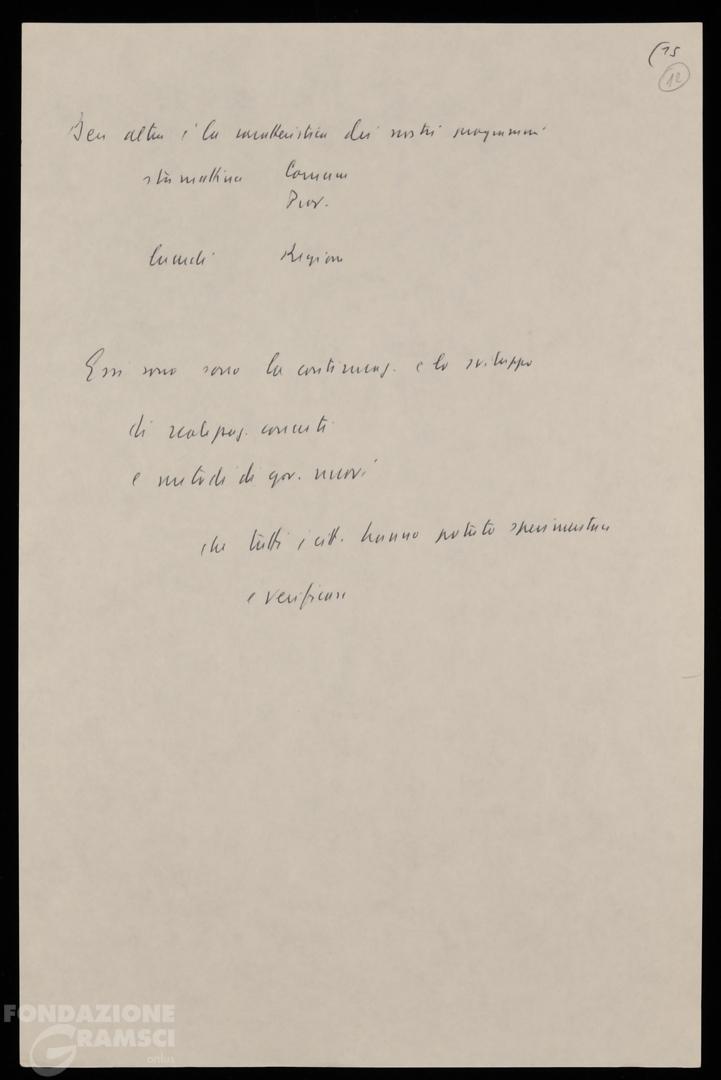 (15
12
Ben altra è la caratteristica dei nostri programmi
stamattina Comune
Prov.
lunedì Regione
Essi sono sono la continuaz. e lo sviluppo
di realizzaz. concrete
e metodi di gov. nuovi
che tutti i citt. hanno potuto sperimentare
e verificare
FONDAZIONE
GRAMSCI
onlus